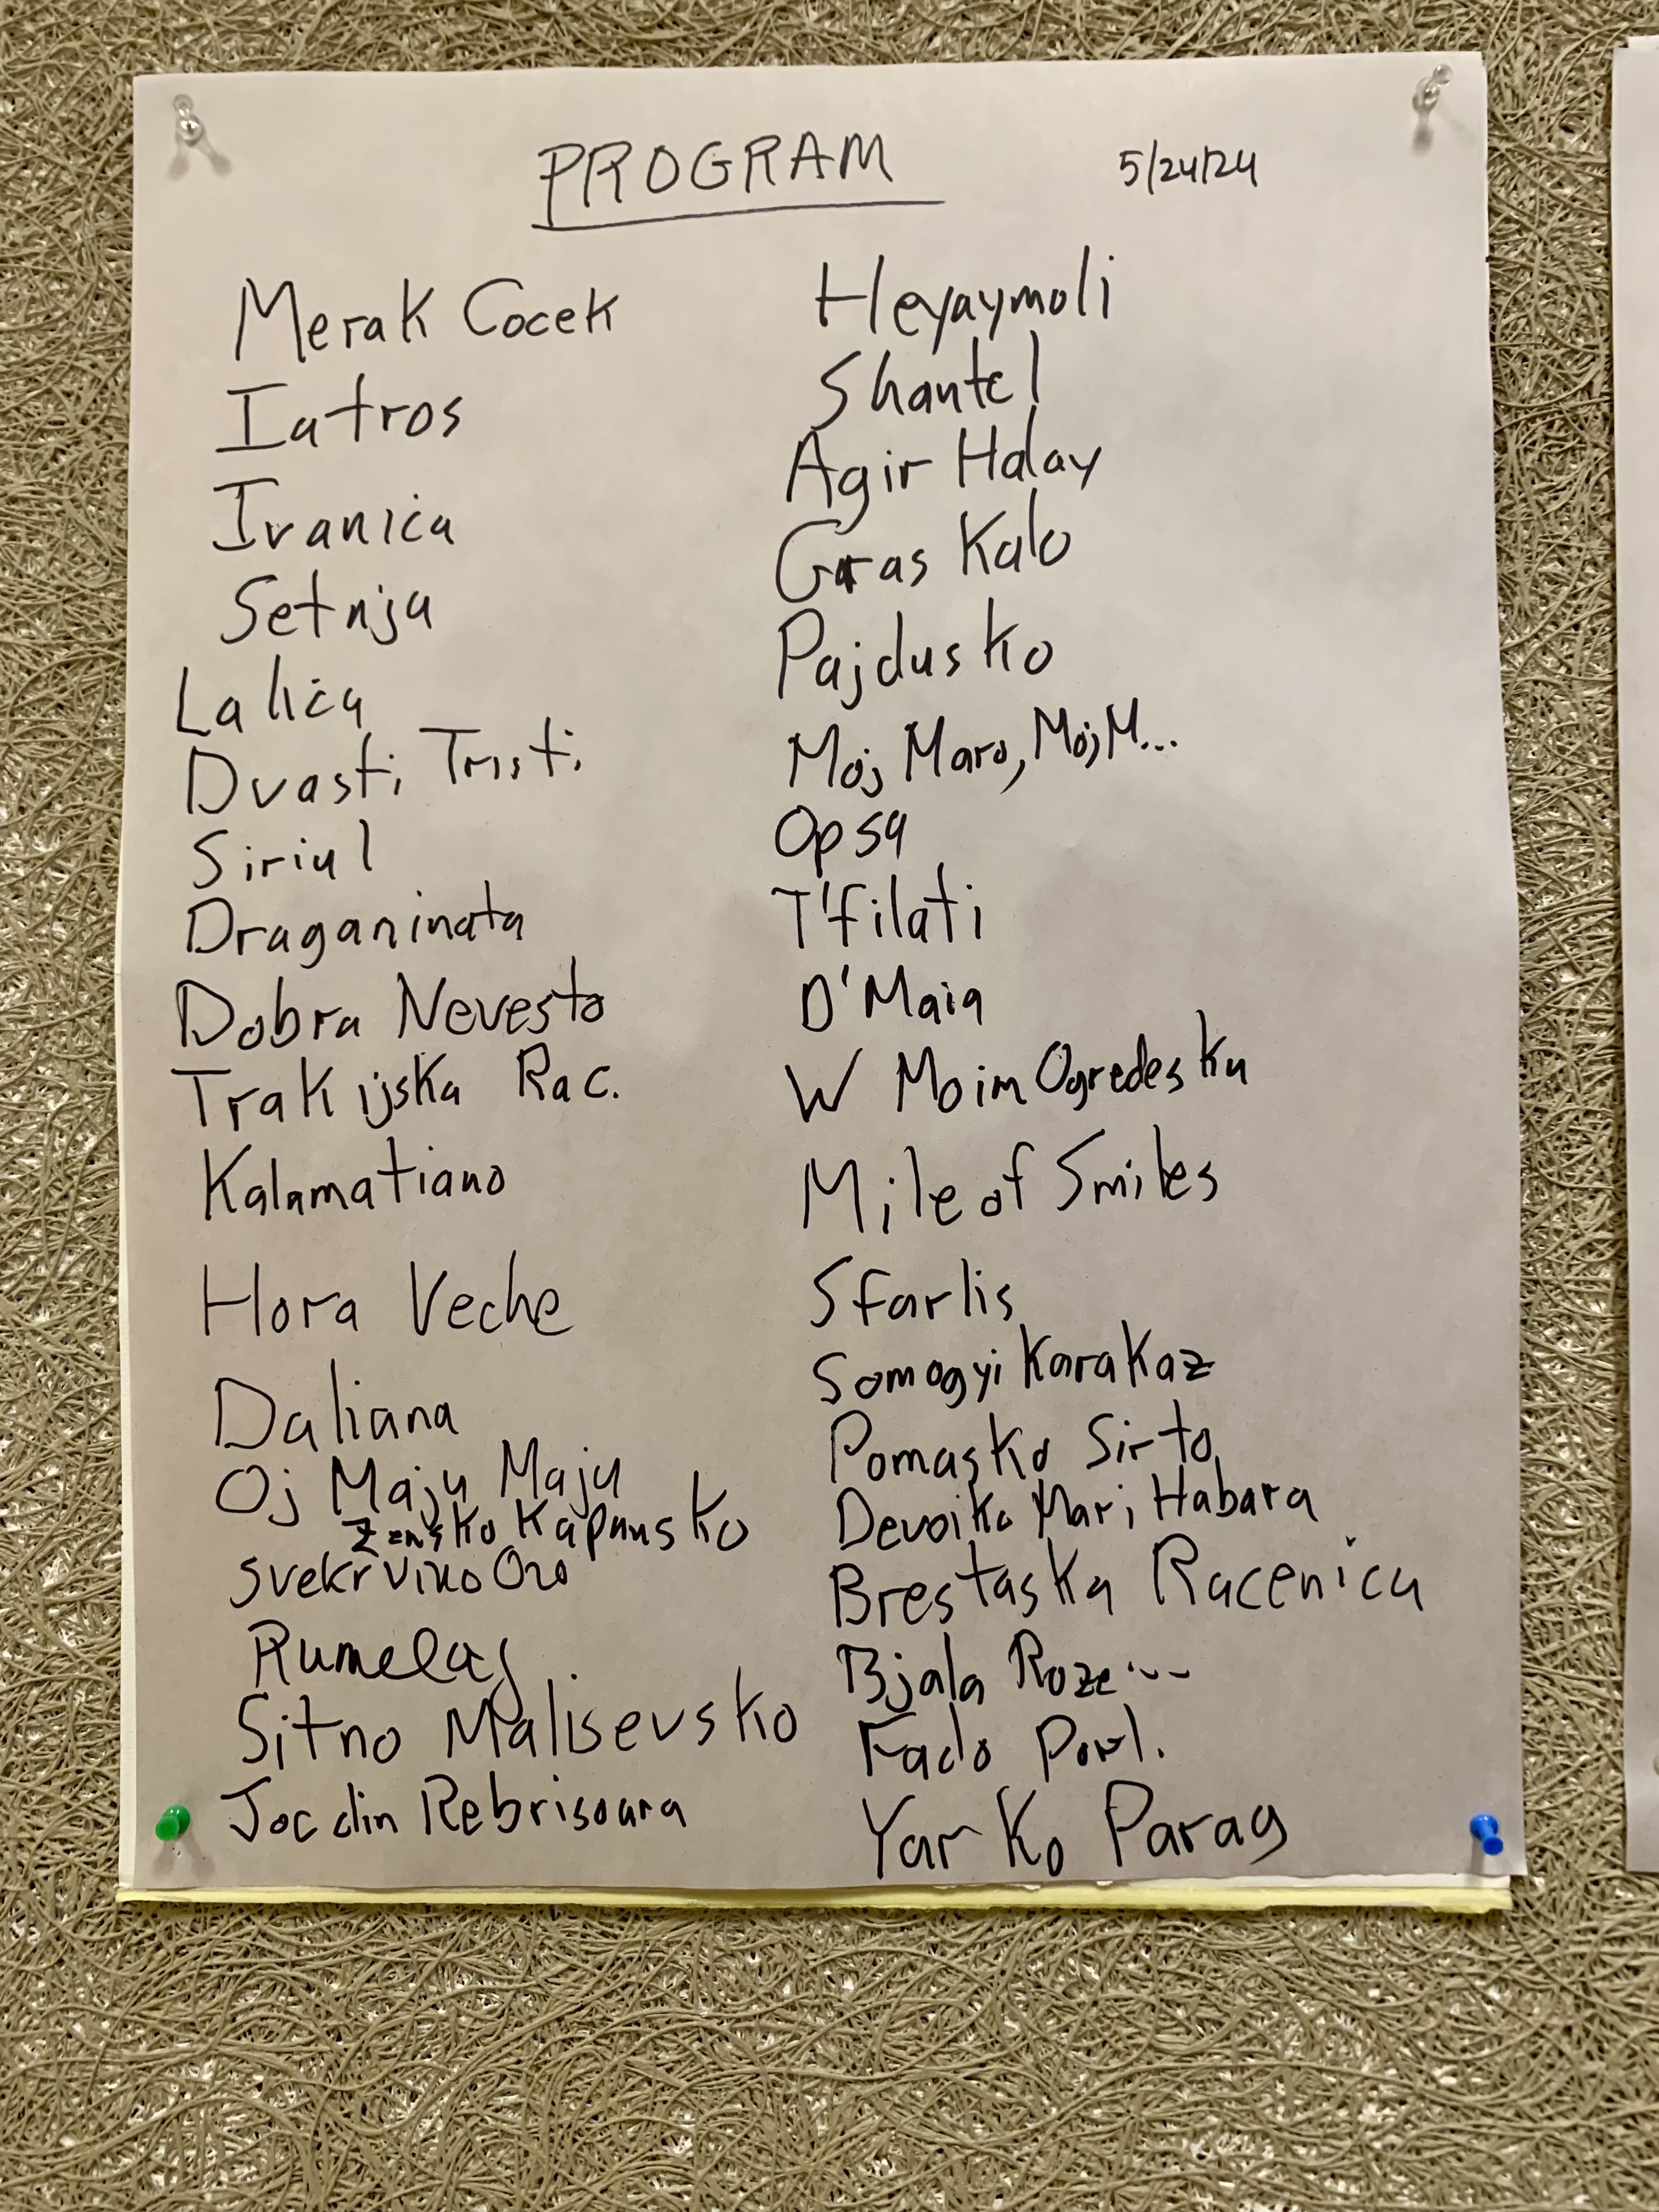 PROGRAM
5/24/24
Merak Cocek
Iatros
Ivanica
Setnja
Lalica
Dvasti Tristi
Siriul
Draganinata
Dobra Nevesto
Trakijska Rac.
Kalamatiano
Hora Veche
Daliana
Oj Maju Maju
Zensko Kapansko
Svekrvino Oro
Rumelaj
Sitno Malisevsko
Joc din Rebrisoara
Heyaymoli
Shantel
Agir Halay
Gras Kalo
Pajdusko
Moj Maro, Moj M...
Opsa
T'filati
D'Maia
W Moim Ogredesku
Mile of Smiles
Sfarlis
Somogyi Karakaz
Pomasko Sirto
Devoiko Mari Habara
Brestaska Racenica
Bjala Roze...
Fado Port.
Yar Ko Parag